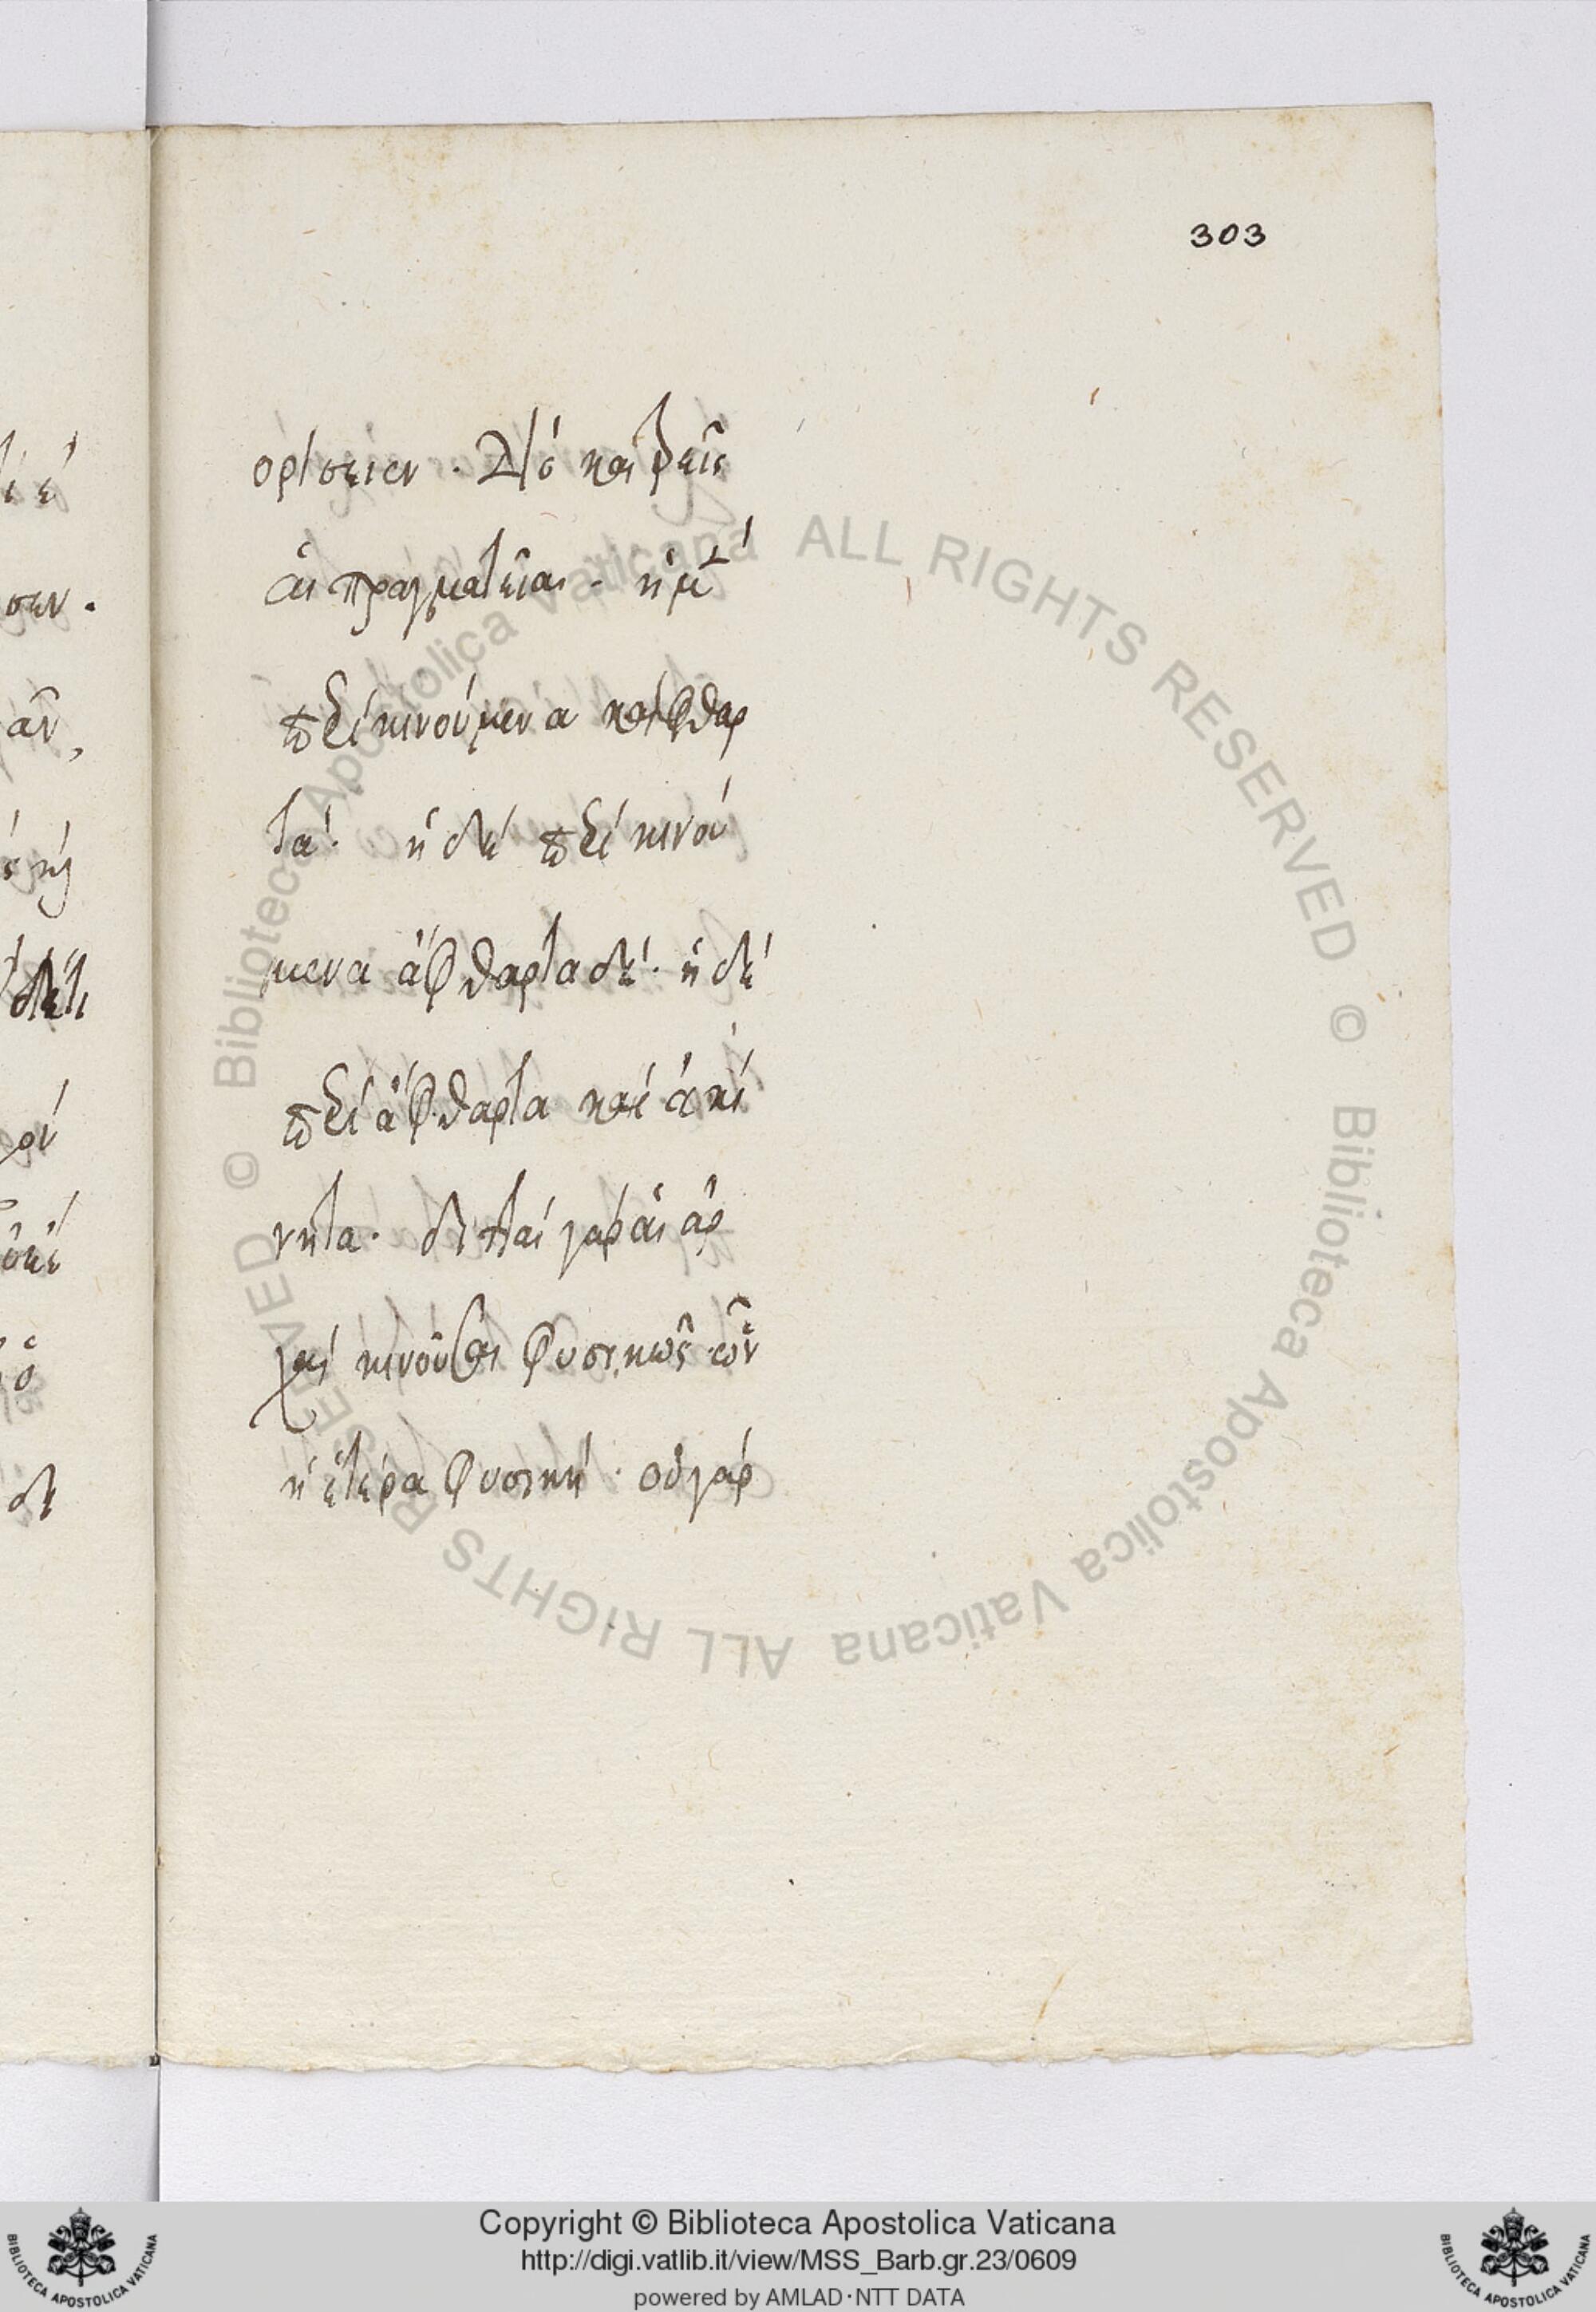 303
ορίσειεν · Διό καὶ τρεῖς
αἱ πραγματεῖαι · ἡ μὲ
περὶ κινούμενα καὶ φθαρ
τά· ἡ δὲ περὶ κινού
μενα ἄφθαρτα δέ· ἡ δὲ
περὶ ἄφθαρτα καὶ ἀκί
νητα · διτταὶ γὰρ αἱ ἀρ
χαὶ κινοῦσαι φυσικῶς ὧν
ἡ ἑτέρα φυσική · οὐ γὰρ
© Biblioteca Apostolica Vaticana ALL RIGHTS RESERVED © Biblioteca Apostolica Vaticana ALL RIGHTS RESERVED
Copyright © Biblioteca Apostolica Vaticana
http://digi.vatlib.it/view/MSS_Barb.gr.23/0609
powered by AMLAD·NTT DATA
BIBLIOTECA APOSTOLICA VATICANA
BIBLIOTECA APOSTOLICA VATICANA